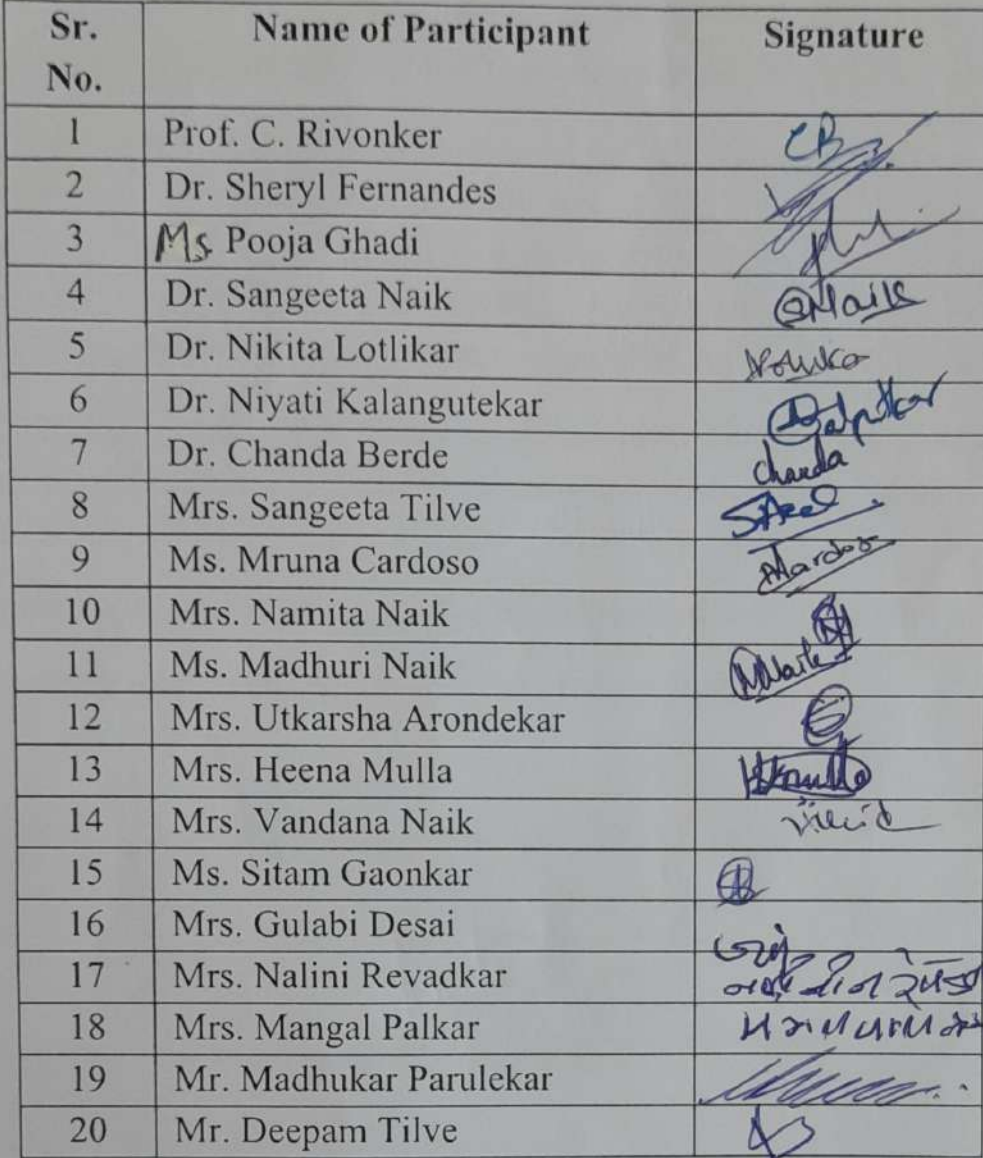 Sr. No. Name of Participant Signature
1 Prof. C. Rivonker
2 Dr. Sheryl Fernandes
3 Ms. Pooja Ghadi
4 Dr. Sangeeta Naik
5 Dr. Nikita Lotlikar
6 Dr. Niyati Kalangutekar
7 Dr. Chanda Berde Chanda
8 Mrs. Sangeeta Tilve
9 Ms. Mruna Cardoso
10 Mrs. Namita Naik
11 Ms. Madhuri Naik
12 Mrs. Utkarsha Arondekar
13 Mrs. Heena Mulla
14 Mrs. Vandana Naik
15 Ms. Sitam Gaonkar
16 Mrs. Gulabi Desai
17 Mrs. Nalini Revadkar
18 Mrs. Mangal Palkar
19 Mr. Madhukar Parulekar
20 Mr. Deepam Tilve